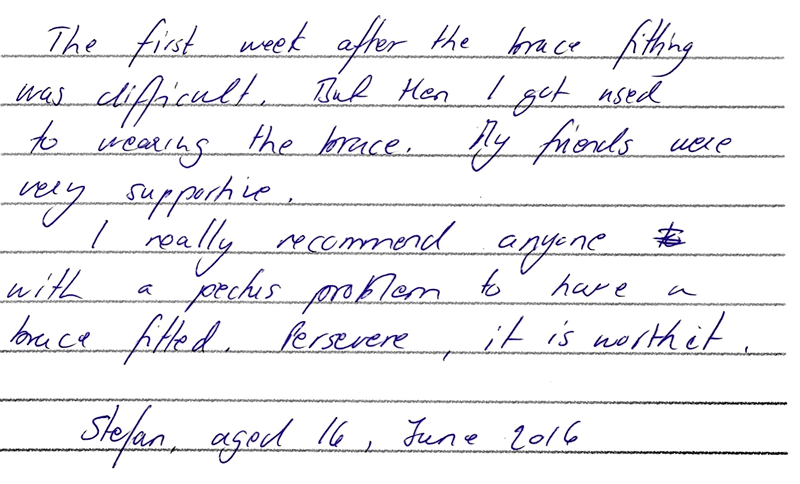 The first week after the brace fitting
was difficult. But then I got used
to wearing the brace. My friends were
very supportive.
I really recommend anyone
with a pectus problem to have a
brace fitted. Persevere, it is worth it.
Stefan, aged 16, June 2016